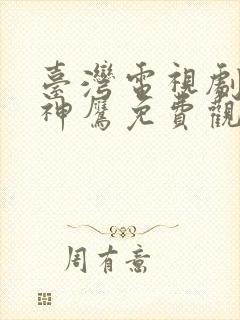 臺灣電視劇
神鷹免費觀
周有意